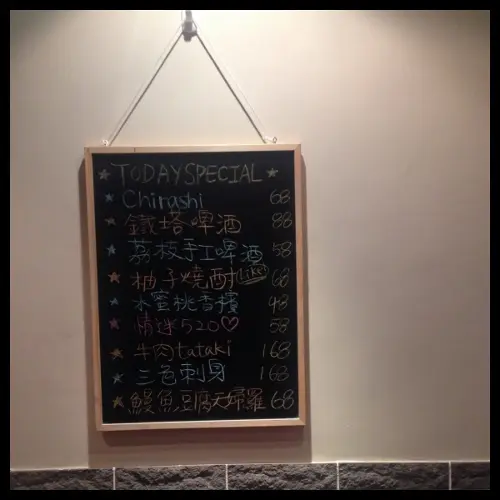 ★ TODAY SPECIAL ★
★ Chirashi 68
★ 鐵塔啤酒 88
★ 荔枝手工啤酒 58
★ 柚子燒酎 (Like!) 68
★ 水蜜桃香檳 48
★ 情迷520♡ 58
★ 牛肉tataki 168
★ 三色刺身 168
★ 鰻魚豆腐天婦羅 68